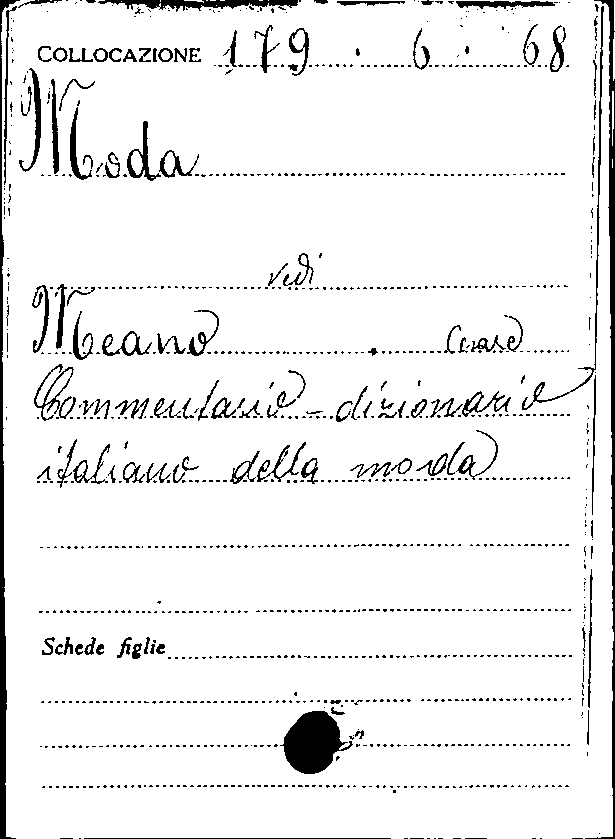 COLLOCAZIONE 179 . 6 . 68
Moda
vedi
Meano . Cesare
Commentario - dizionario
italiano della moda
Schede figlie